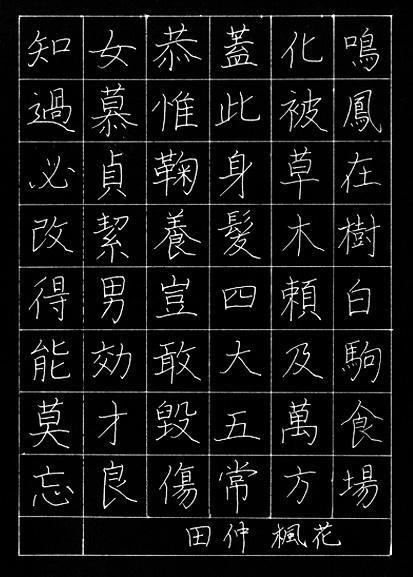 鳴鳳在樹白駒食場
化被草木頼及萬方
蓋此身髪四大五常
恭惟鞠養豈敢毀傷
女慕貞絜男効才良
知過必改得能莫忘
田仲 楓花